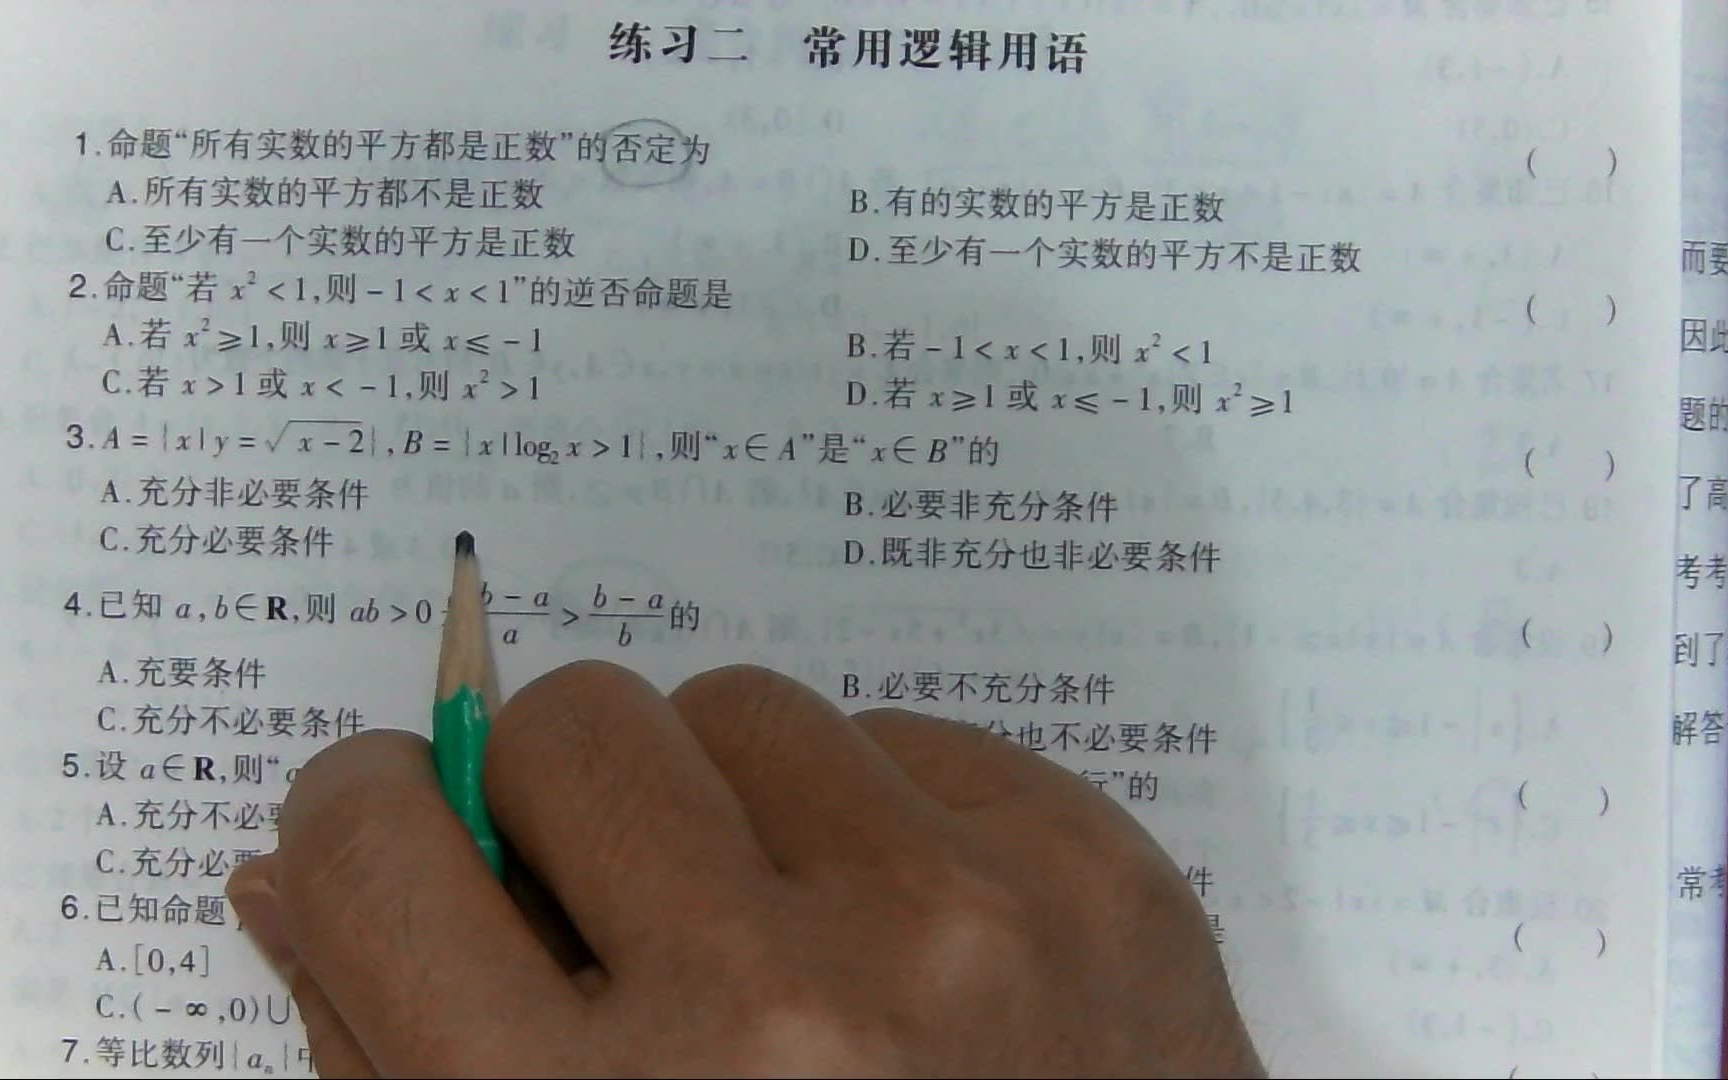 练习二 常用逻辑用语
1.命题“所有实数的平方都是正数”的否定为 ( )
A.所有实数的平方都不是正数 B.有的实数的平方是正数
C.至少有一个实数的平方是正数 D.至少有一个实数的平方不是正数
2.命题“若 x²<1,则 -1<x<1”的逆否命题是 ( )
A.若 x²≥1,则 x≥1 或 x≤-1 B.若 -1<x<1,则 x²<1
C.若 x>1 或 x<-1,则 x²>1 D.若 x≥1 或 x≤-1,则 x²≥1
3.A={x|y=√(x-2)},B={x|log₂x>1},则“x∈A”是“x∈B”的 ( )
A.充分非必要条件 B.必要非充分条件
C.充分必要条件 D.既非充分也非必要条件
4.已知 a,b∈R,则 ab>0 (b-a)/a > (b-a)/b 的 ( )
A.充要条件 B.必要不充分条件
C.充分不必要条件 也不必要条件
5.设 a∈R,则“ 行”的 ( )
A.充分不必要
C.充分必要 件
6.已知命题 是 ( )
A.[0,4]
C.(-∞,0)∪
7.等比数列{aₙ}中
而要
因此
题的
了高
考考
到了
解答
常考